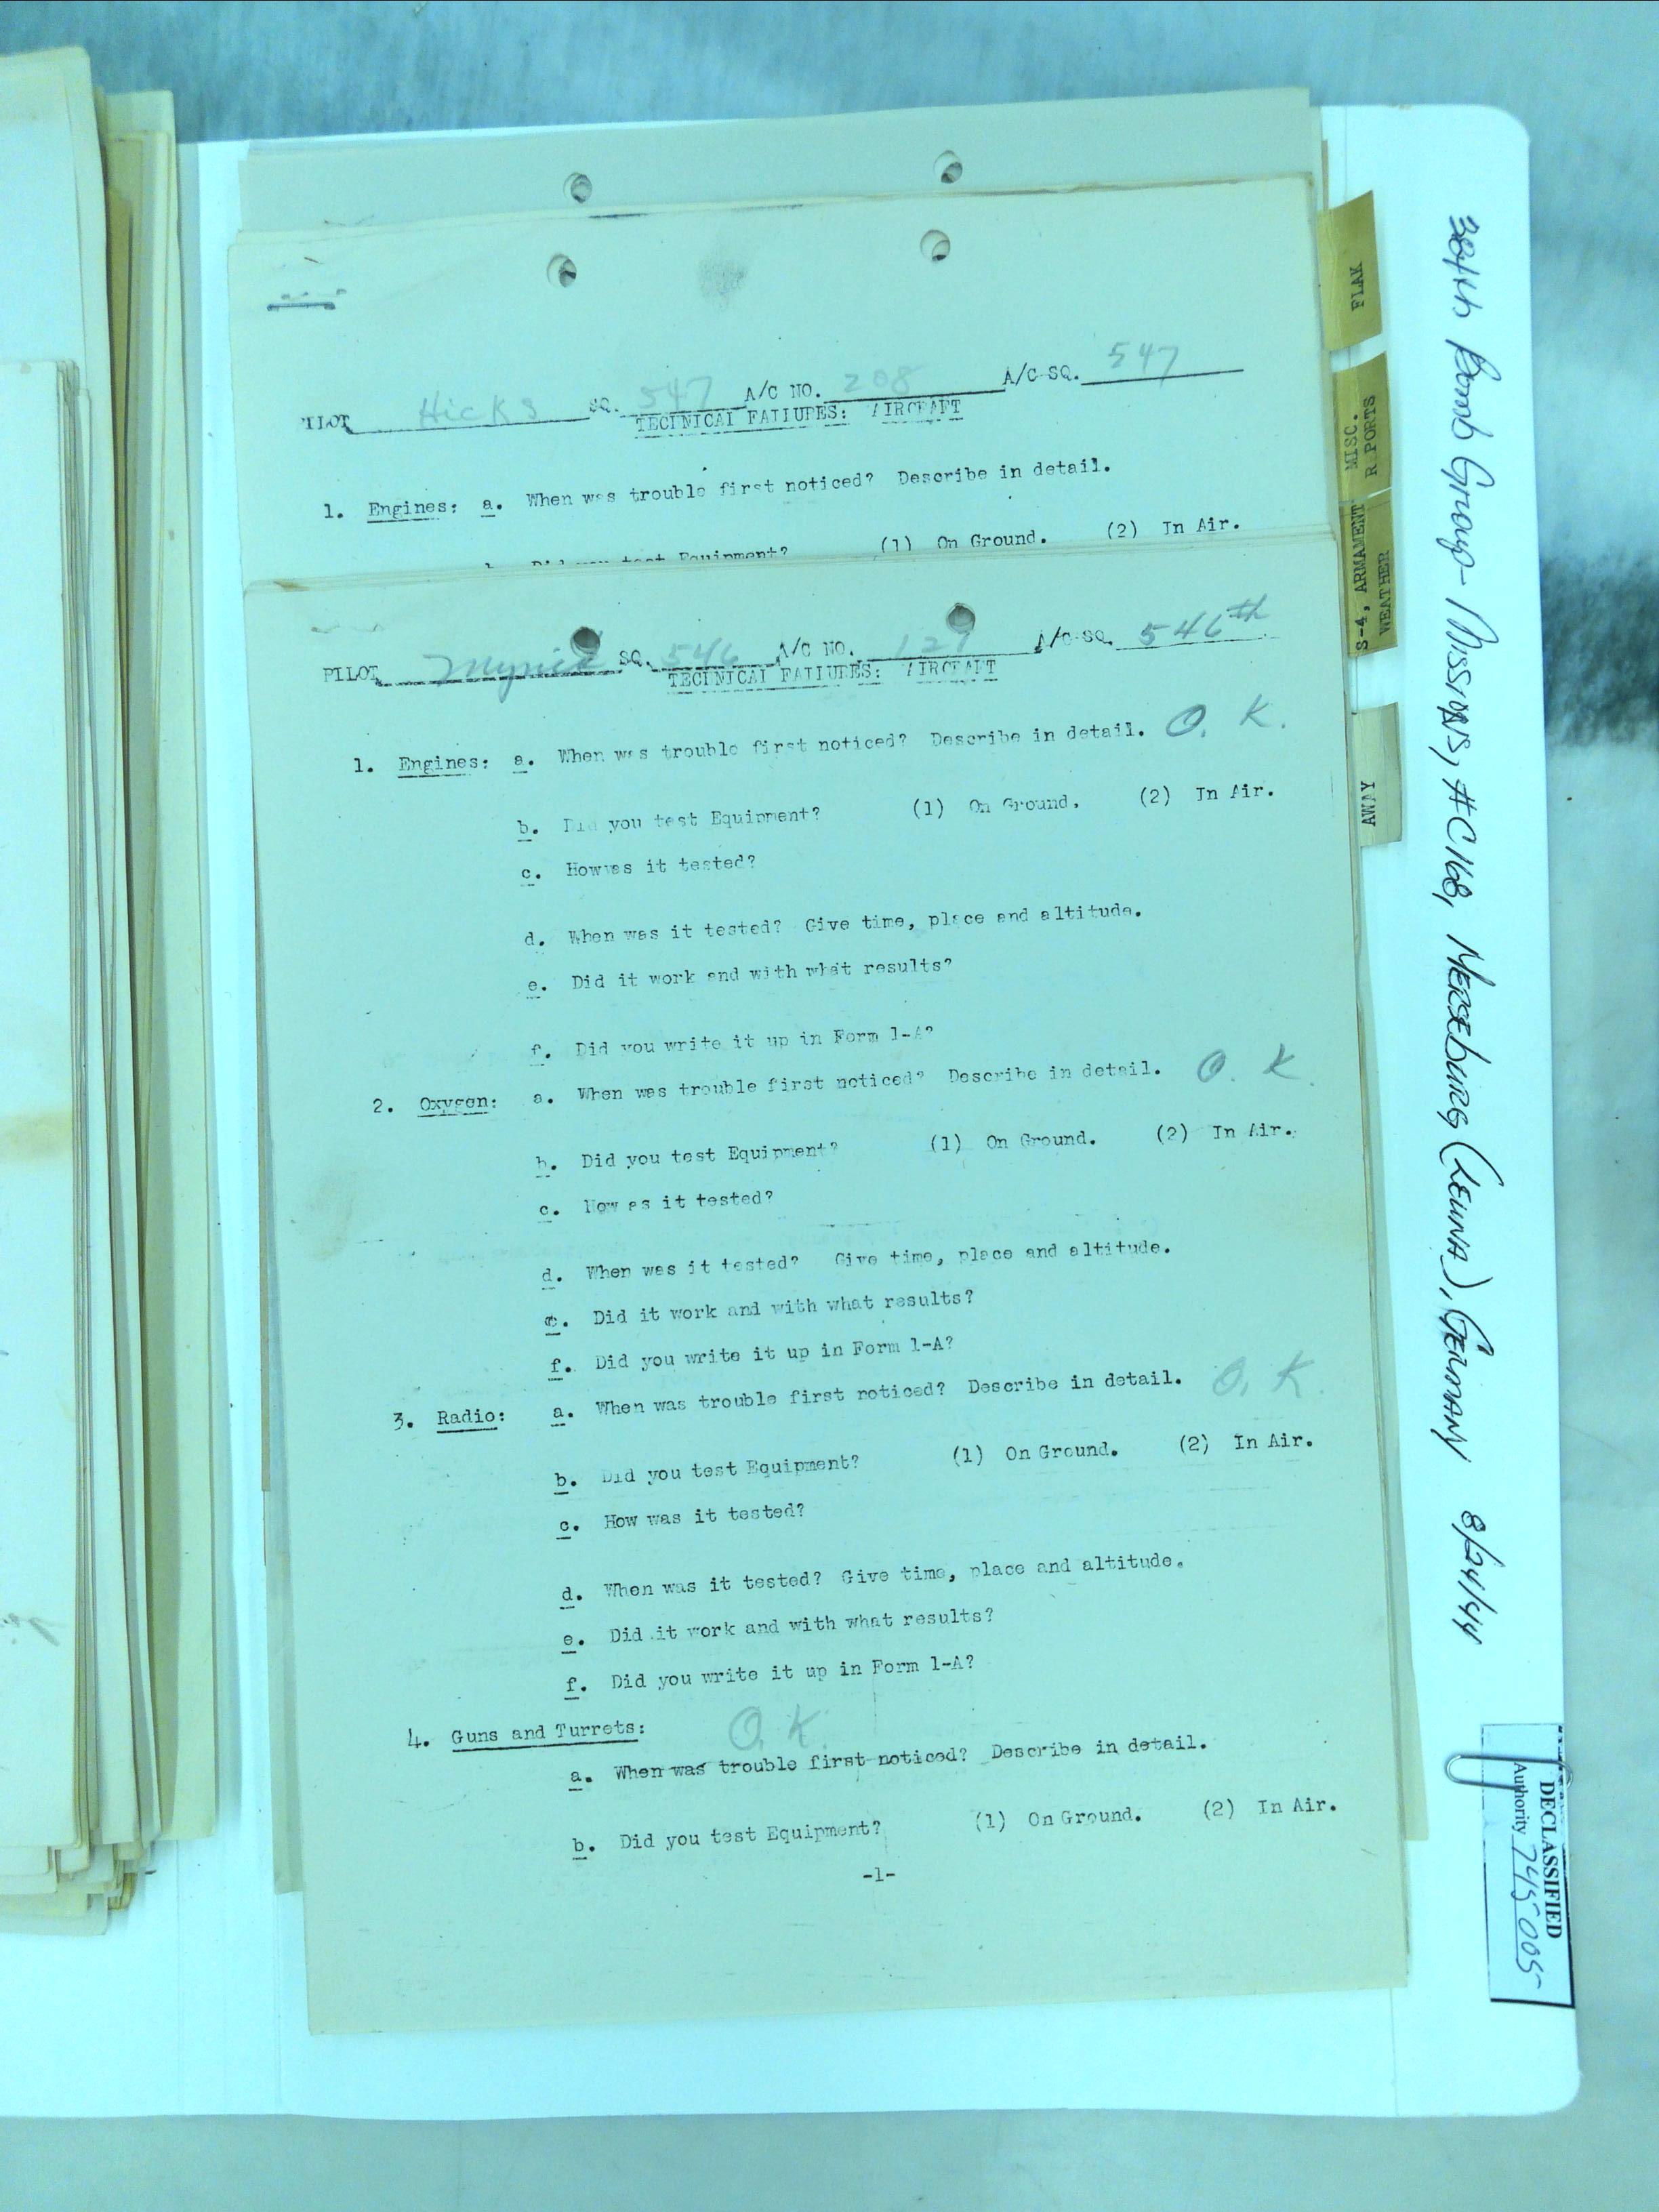 PILOT Hicks SQ. 547 A/C NO. 208 A/C SQ. 547
TECHNICAL FAILURES: AIRCRAFT
1. Engines: a. When was trouble first noticed? Describe in detail.
b. Did you test Equipment? (1) On Ground. (2) In Air.
PILOT SQ. 546 A/C NO. 129 A/C SQ. 546th
TECHNICAL FAILURES: AIRCRAFT
1. Engines: a. When was trouble first noticed? Describe in detail. O. K.
b. Did you test Equipment? (1) On Ground. (2) In Air.
c. How was it tested?
d. When was it tested? Give time, place and altitude.
e. Did it work and with what results?
f. Did you write it up in Form 1-A?
2. Oxygen: a. When was trouble first noticed? Describe in detail. O. K.
b. Did you test Equipment? (1) On Ground. (2) In Air.
c. How as it tested?
d. When was it tested? Give time, place and altitude.
e. Did it work and with what results?
f. Did you write it up in Form 1-A?
3. Radio: a. When was trouble first noticed? Describe in detail. O. K.
b. Did you test Equipment? (1) On Ground. (2) In Air.
c. How was it tested?
d. When was it tested? Give time, place and altitude.
e. Did it work and with what results?
f. Did you write it up in Form 1-A?
4. Guns and Turrets: O. K.
a. When was trouble first noticed? Describe in detail.
b. Did you test Equipment? (1) On Ground. (2) In Air.
-1-
FLAK
MISC.
R PORTS
S-4, ARMAMENT
WEATHER
AWAY
384th Bomb Group - Missions, #C168, Merseburg (Leuna), Germany 8/24/44
DECLASSIFIED
Authority 745005